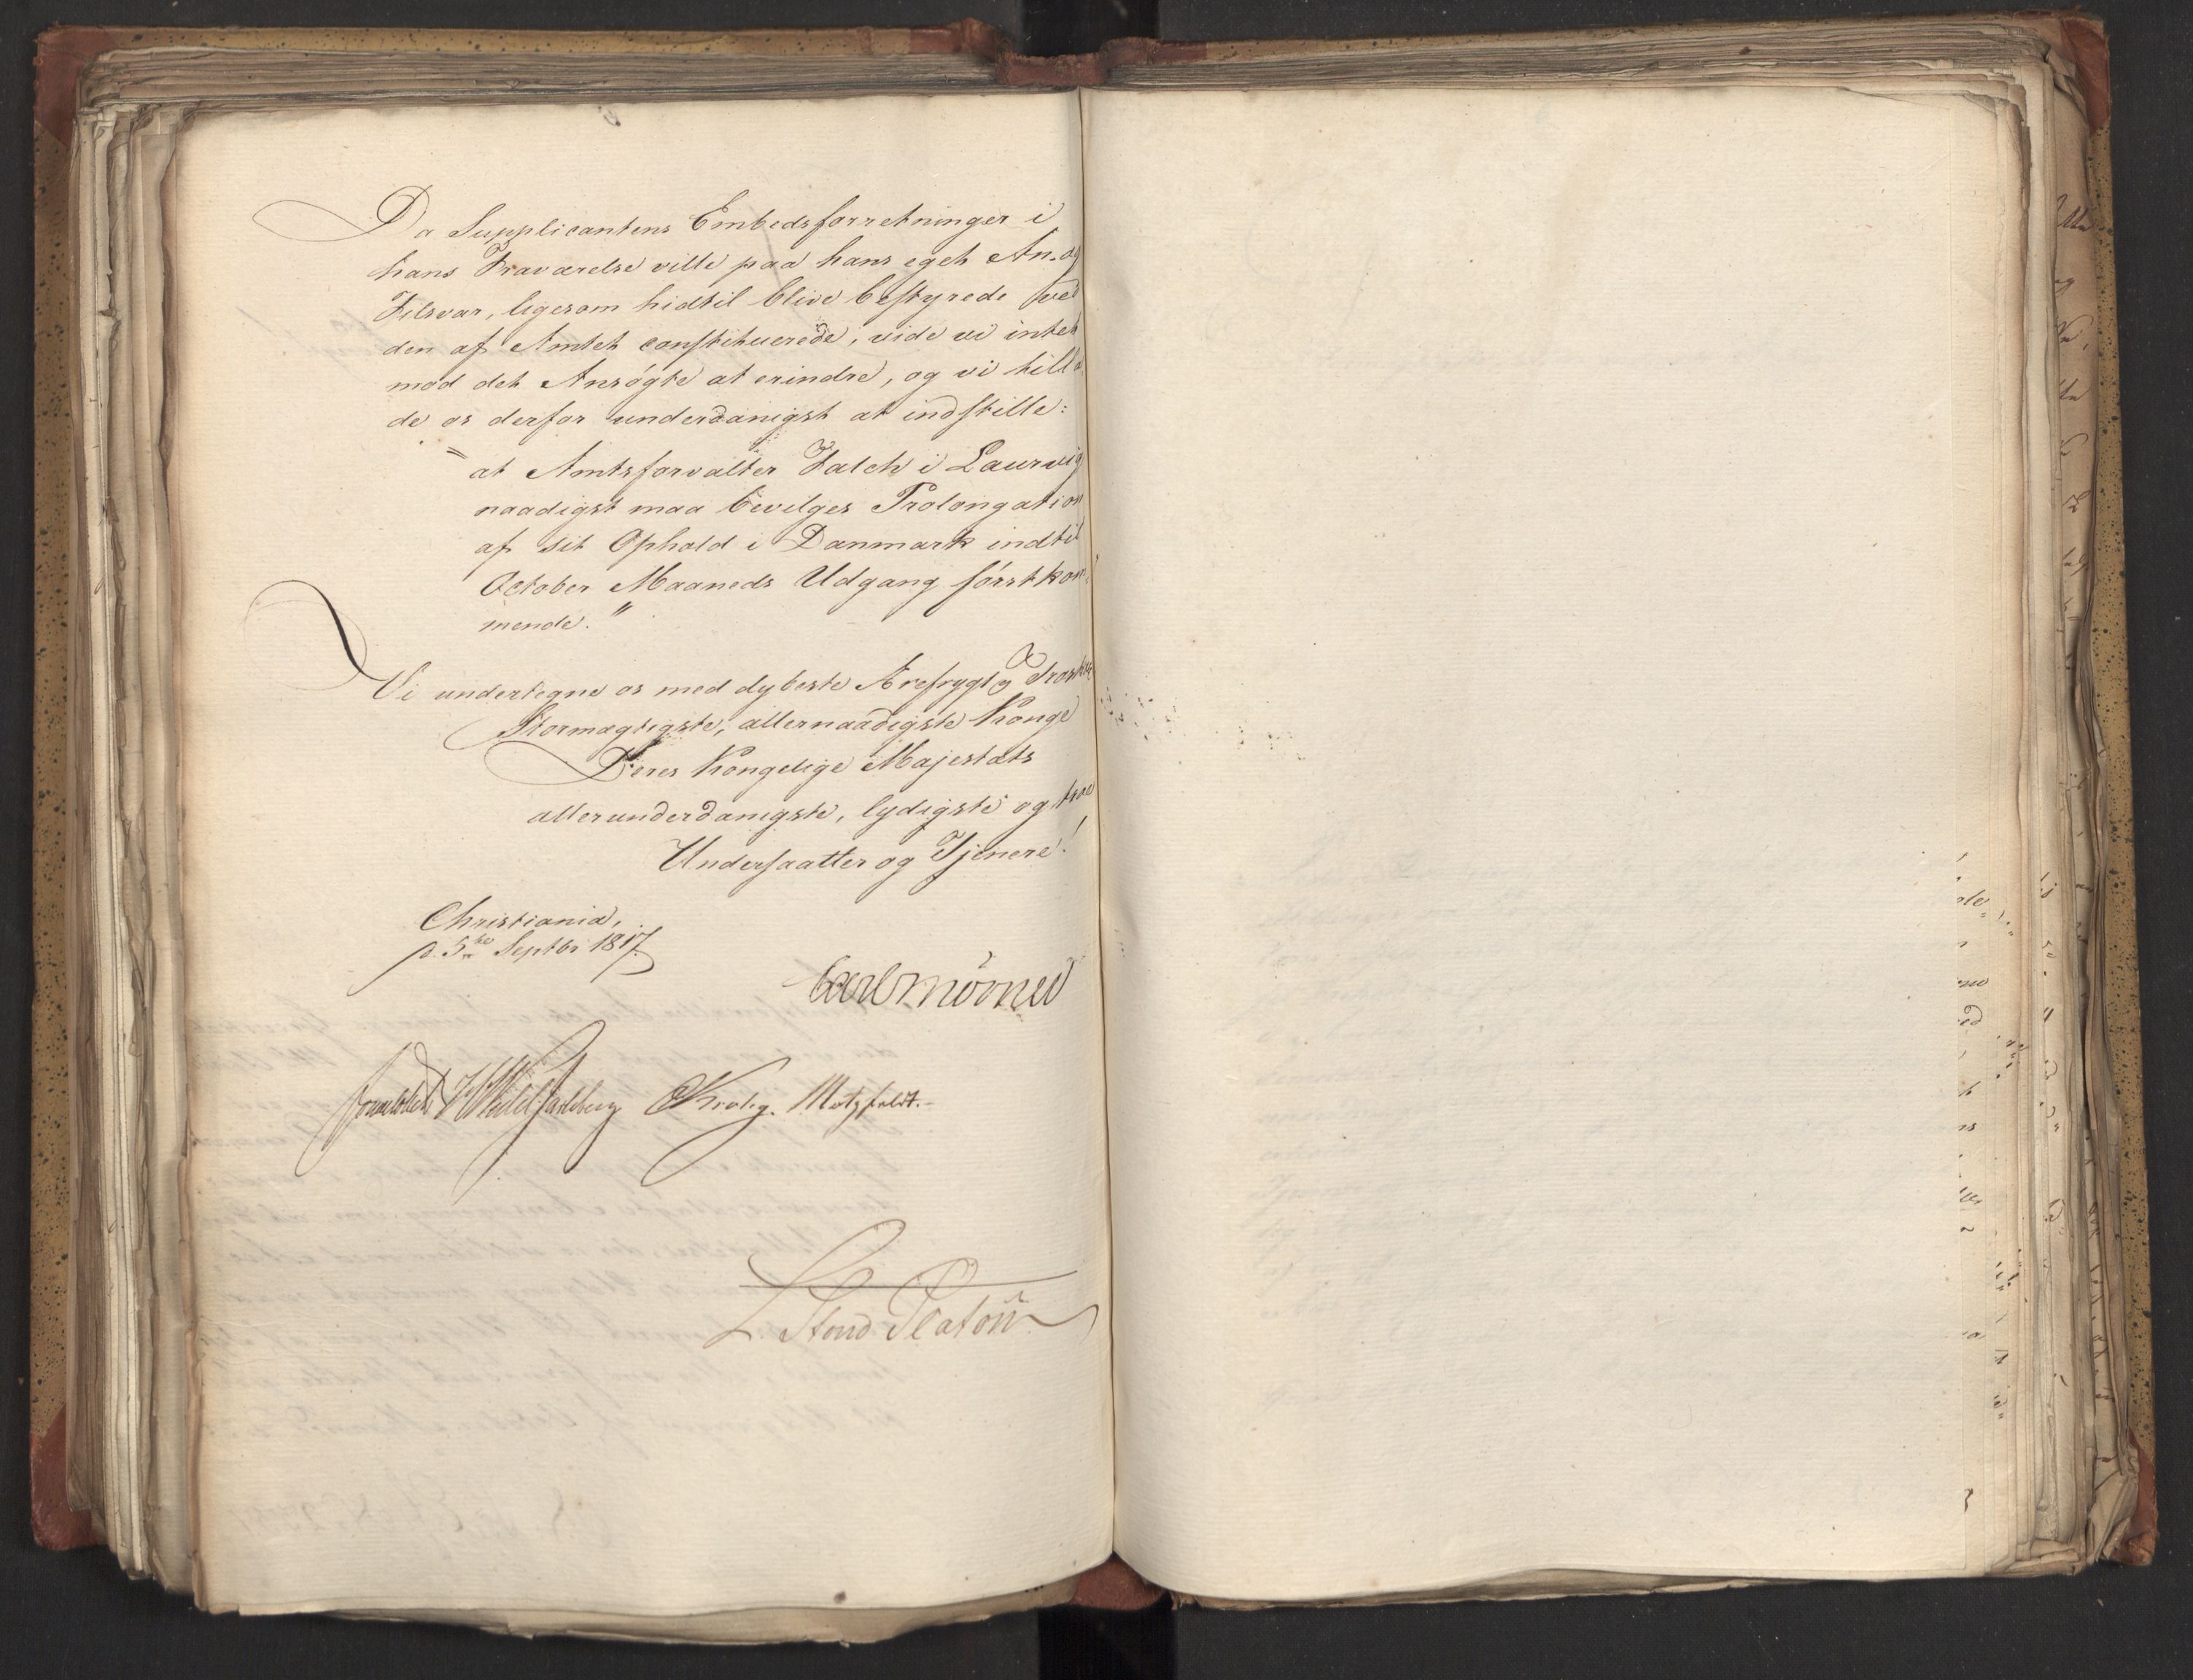 Da Supplicantens Embedsforretninger i
hans Fraværelse ville paa hans eget An- og
Tilsvar, ligesom hidtil blive bestyrede ved
den af Amtet constituerede, vide vi intet
mod det Ansøgte at erindre, og vi tilla
de os derfor underdanigst at indstille:
"at Amtsforvalter Falch i Laurvig
naadigst maa bevilges Prolongation
af sit Ophold i Danmark indtil
October Maaneds Udgang førstkom-
mende."
Vi undertegne os med dybeste Ærefrygt og
Stormægtigste, allernaadigste Konge
Deres Kongelige Majestæts
allerunderdanigste, lydigste og troe
Undersaatter og Tjenere!
Christiania,
d. 5te Septbr 1817.
Carl Mörner
Sommerhielm HWedelJarlsberg CKrohg. Motzfeldt.
L Stoud Platou